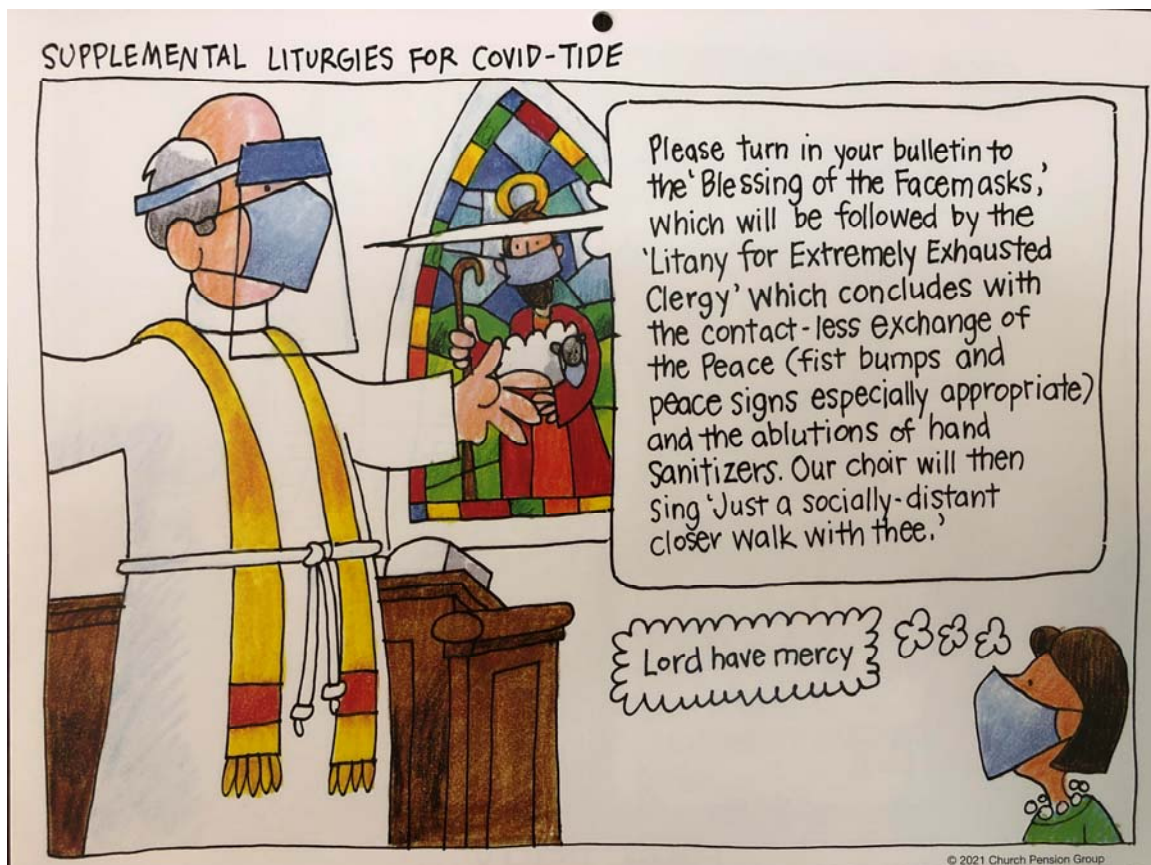 SUPPLEMENTAL LITURGIES FOR COVID-TIDE
Please turn in your bulletin to
the 'Blessing of the Facemasks,'
which will be followed by the
'Litany for Extremely Exhausted
Clergy' which concludes with
the contact-less exchange of
the Peace (fist bumps and
peace signs especially appropriate)
and the ablutions of hand
sanitizers. Our choir will then
sing 'Just a socially-distant
closer walk with thee.'
Lord have mercy
© 2021 Church Pension Group